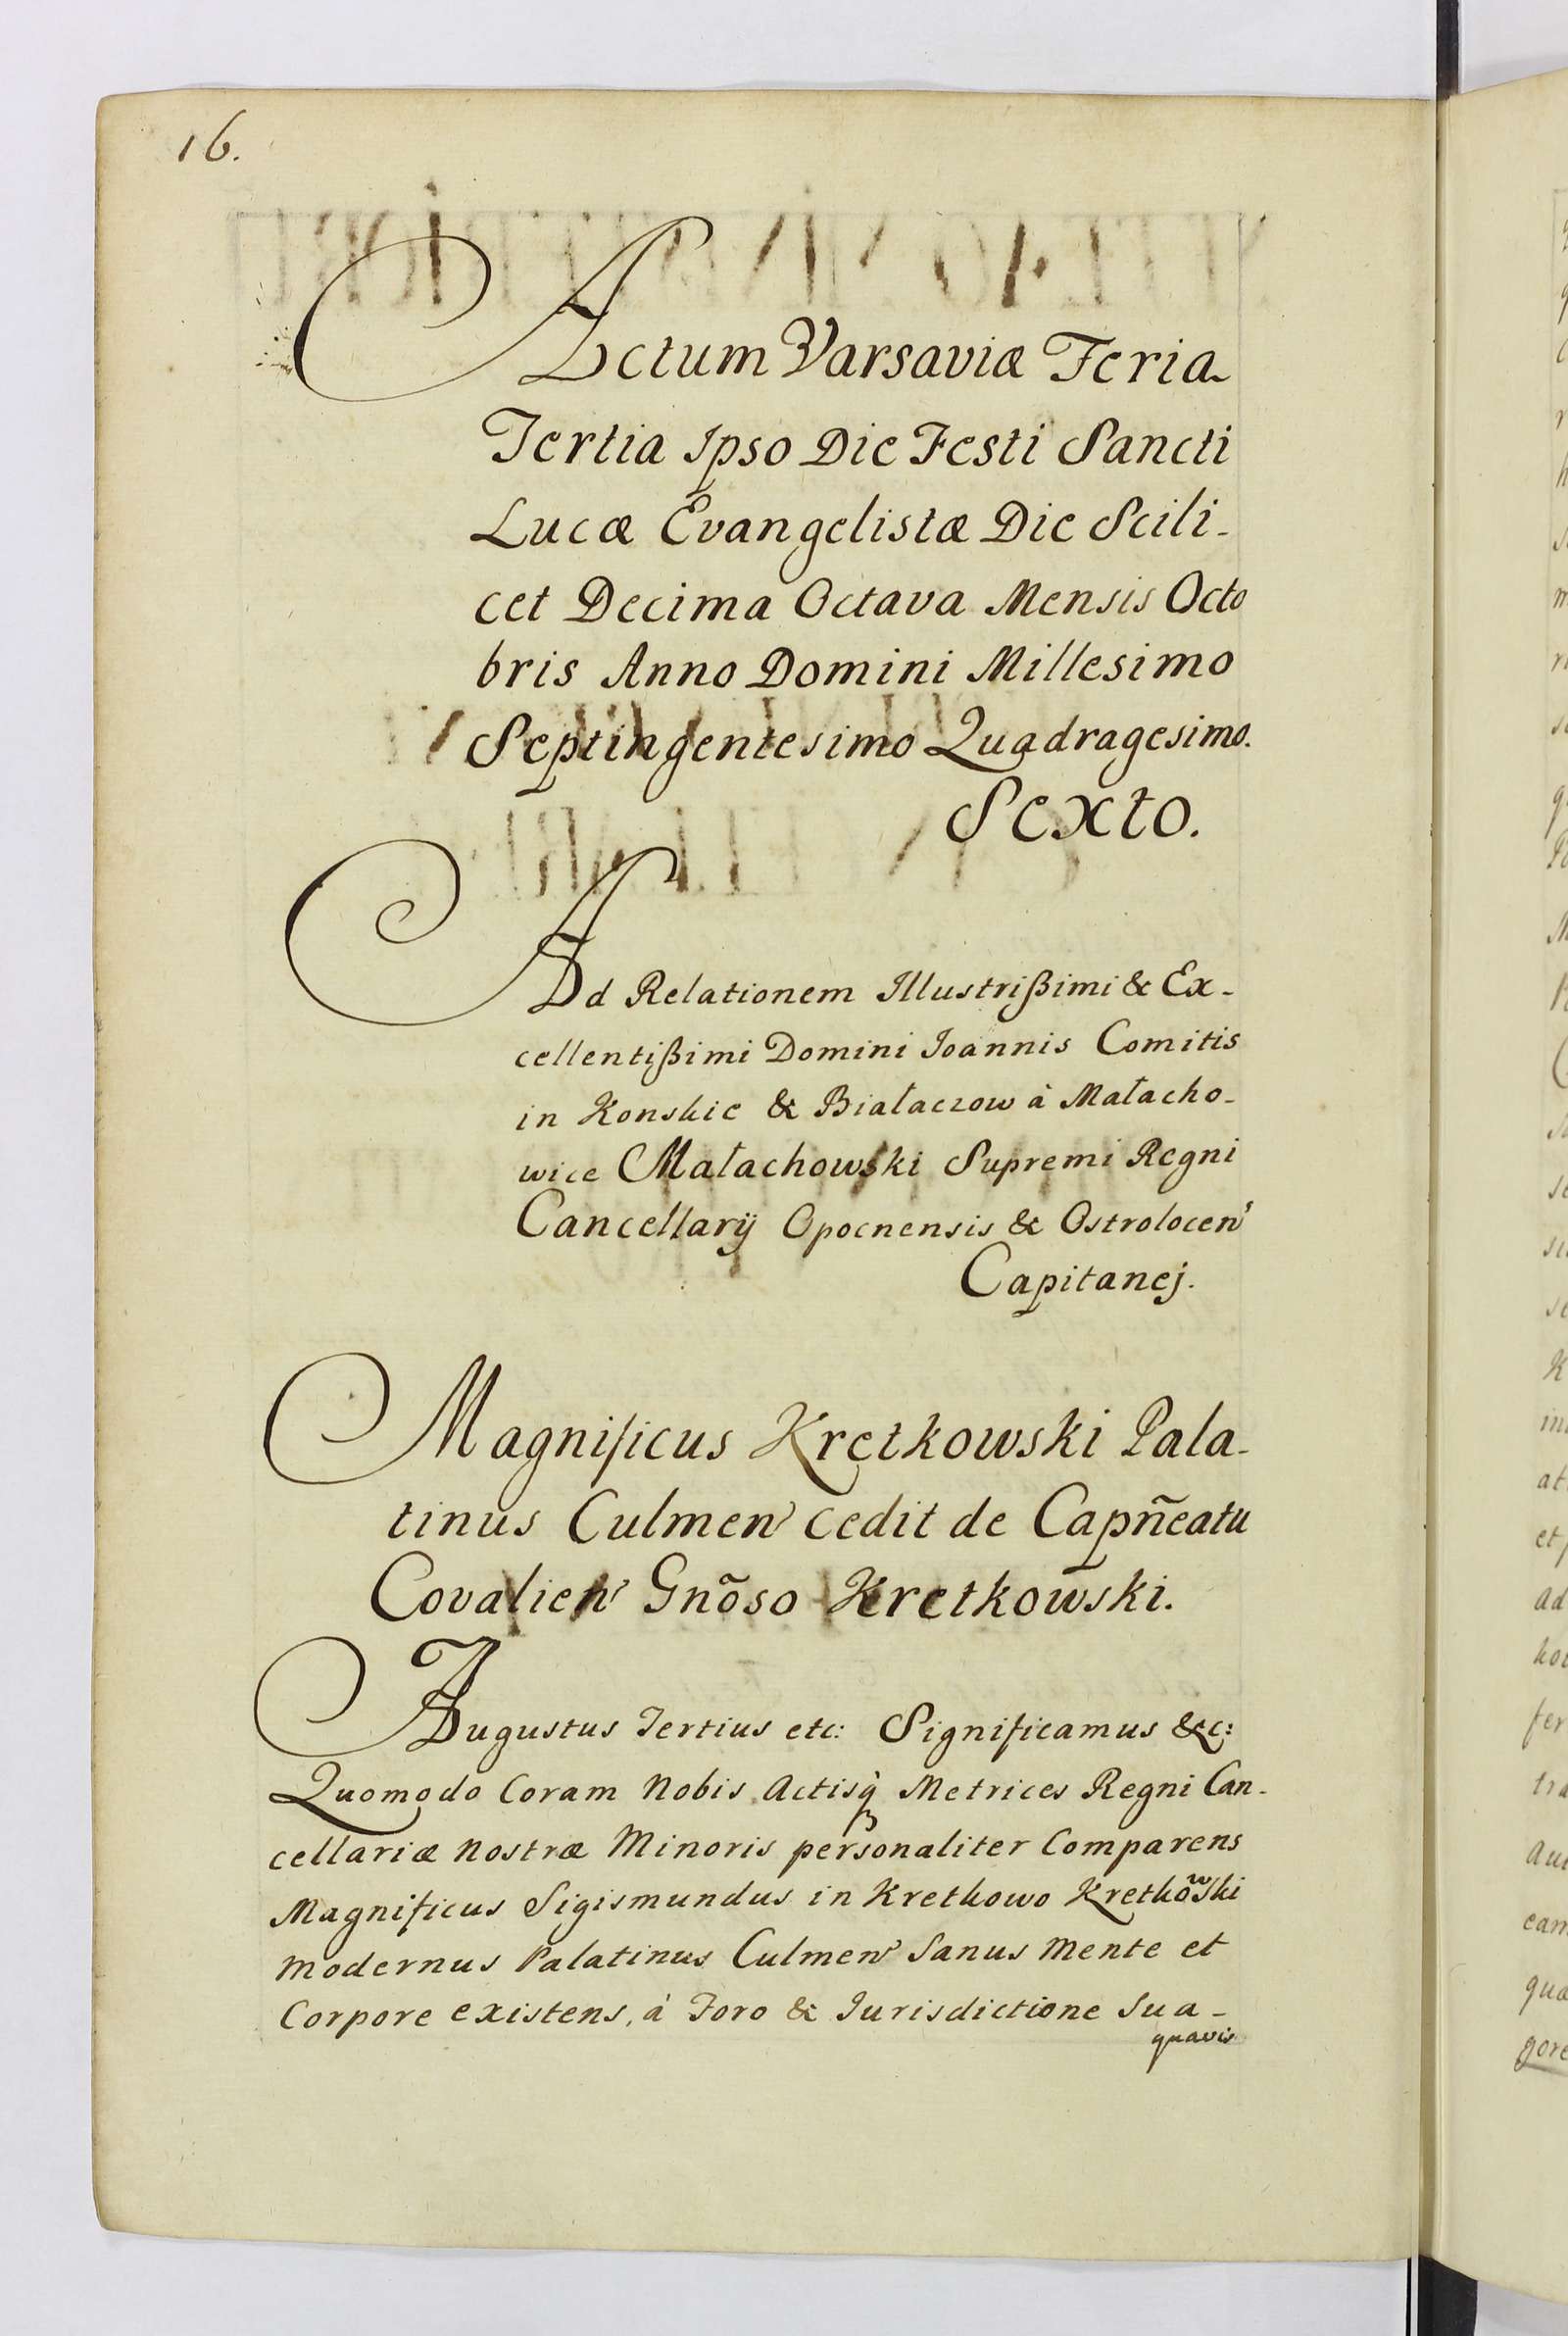 16.
Actum Varsaviæ Feria
Tertia Ipso Die Festi Sancti
Lucæ Evangelistæ Die Scili-
cet Decima Octava Mensis Octo
bris Anno Domini Millesimo
Septingentesimo Quadragesimo.
Sexto.
Ad Relationem Illustrißimi & Ex-
cellentißimi Domini Joannis Comitis
in Konskie & Białaczow à Małacho-
wice Małachowski Supremi Regni
Cancellarij Opocnensis & Ostrolocen̕
Capitanej.
Magnificus Kretkowski Pala-
tinus Culmen̕ cedit de Capñeatu
Covalien̕ Gnõso Kretkowski.
Augustus Tertius etc: Significamus &c:
Quomodo Coram Nobis Actisq̀ Metrices Regni Can-
cellariæ Nostræ Minoris personaliter Comparens
Magnificus Sigismundus in Kretkowo Kretkowski
Modernus Palatinus Culmen̕ Sanus Mente et
Corpore existens, à Foro & Jurisdictione Sua-
quavis